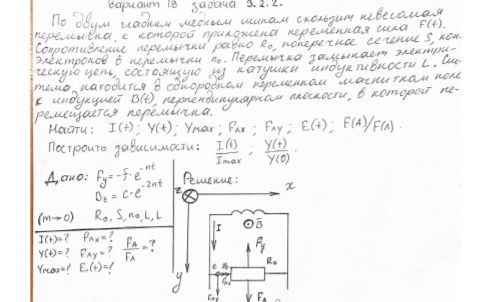 Вариант 13 задача 3.2.2.
По двум гладким медным шинам скользит невесомая
перемычка, к которой приложена переменная сила F(t).
Сопротивление перемычки равно R₀, поперечное сечение S, кон.
электронов в перемычки n₀. Перемычка замыкает электри-
ческую цепь, состоящую из катушки индуктивности L. Сис
тема находится в однородном переменном магнитном поле
с индукцией B(t), перпендикулярном плоскости, в которой пе-
ремещается перемычка.
Найти: I(t); Y(t); Ymax; Fлx; Fлy; E(t); F(A)/F(л).
Построить зависимости: I(t)/Imax; Y(t)/Y(0).
Дано: Fy=-f·e^-nt
Bz=c·e^-2nt
(m→0) R₀, S, n₀, L, L
I(t)=? Fлx=?
Y(t)=? Fлy=? FA/Fл=?
Ymax=? E(t)=?
Решение:
z x
I B
Fy
c R₀
Fлx
y FA